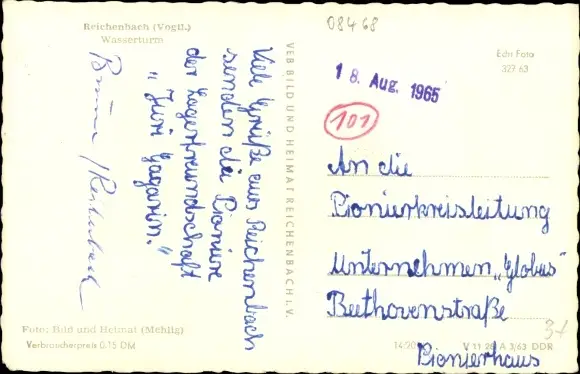 Reichenbach (Vogtl.)
Wasserturm
Viele Grüße aus Reichenbach
senden die Pioniere
der Lagerfreundschaft
"Juri Gagarin."
VEB BILD UND HEIMAT REICHENBACH I. V.
08468
Echt Foto
327 63
18. Aug. 1965
101
An die
Pionierkreisleitung
Unternehmen „Globus"
Beethovenstraße
Pionierhaus
Foto: Bild und Heimat (Mehlig)
Verbraucherpreis 0,15 DM
V 11 28 A 3/63 DDR